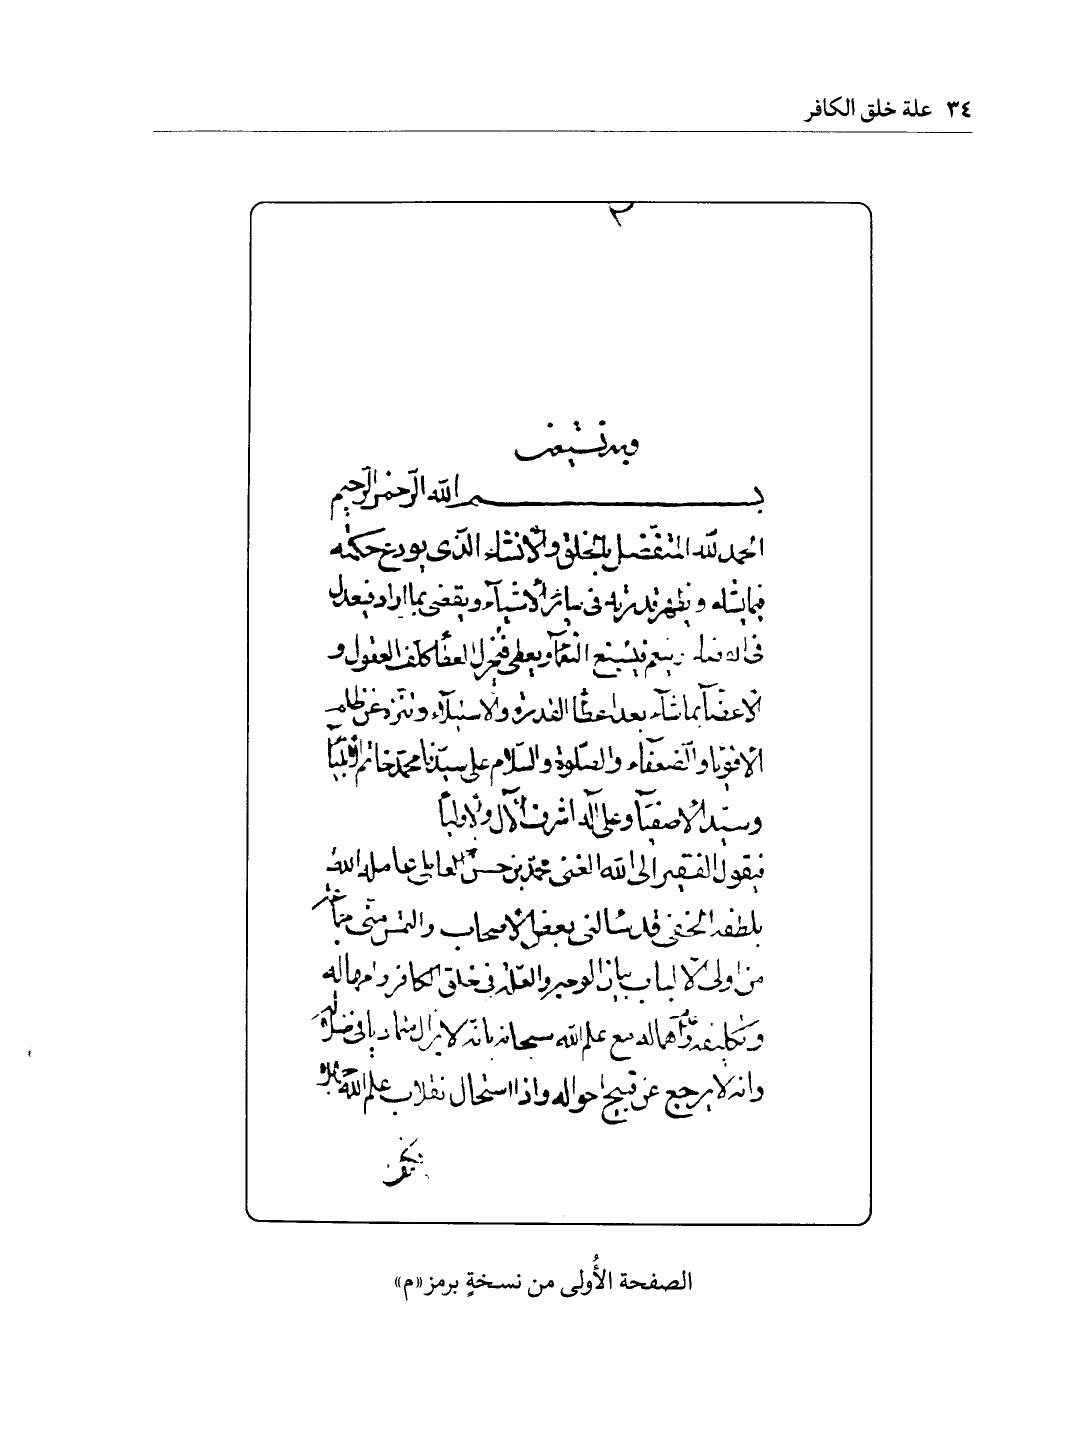 ٣٤ علة خلق الكافر
وبه نستعين
بسم الله الرحمن الرحيم
الحمد لله المتفضل بالخلق والانشاء الذى يودع حكمته
فيما يشاء ويظهر قدرته فى سائر الاشيآء ويقضى بما اراد فيعدل
فى ينعم فيسبغ النعمآ ويعطى فيجزل العطا كلف العقول و
الاعضآ بما شآء بعد اعطا القدرة والاستيلآء وتنزه عن ظلم
الاقويا والضعفاء والصلوة والسلام على سيدنا محمد خاتم الانبيآ
وسيد الاصفيآ وعلى آله اشرف الآل والاوليا
فيقول الفقير الى الله الغنى محمد بن حسن العاملى عامله الله
بلطفه الخفى قد سالنى بعض الاصحاب والتمس منى
من اولى الالباب بيان الوجه والعلة فى خلق الكافر وامهاله
وتكليفه واهماله مع علم الله سبحانه بانه لا يزال متماديا فى ضلاله
وانه لا يرجع عن قبيح احواله واذا استحال نقلاب علم الله
الصفحة الأُولى من نسخةٍ برمز «م»